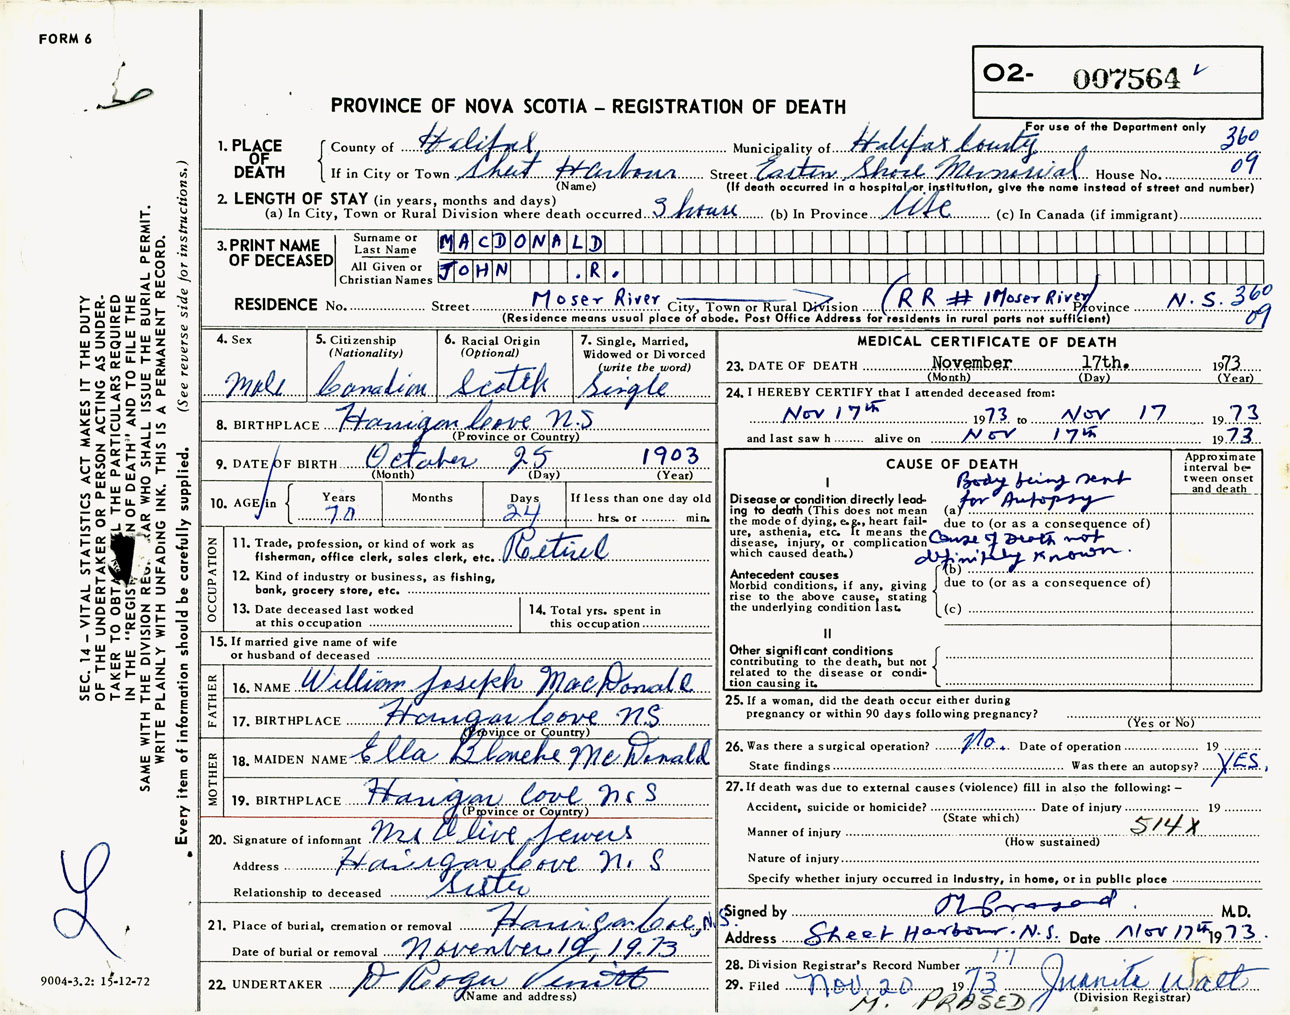 FORM 6
O2- 007564
PROVINCE OF NOVA SCOTIA – REGISTRATION OF DEATH
For use of the Department only
1. PLACE OF DEATH
County of Halifax Municipality of Halifax County 360
If in City or Town Sheet Harbour Street Eastern Shore Memorial House No. 09
(Name) (If death occurred in a hospital or institution, give the name instead of street and number)
2. LENGTH OF STAY (in years, months and days)
(a) In City, Town or Rural Division where death occurred 3 hours (b) In Province Life (c) In Canada (if immigrant)
3. PRINT NAME OF DECEASED
Surname or Last Name MACDONALD
All Given or Christian Names JOHN .R.
RESIDENCE No. Street Moser River City, Town or Rural Division (RR # 1 Moser River) Province N.S. 360
(Residence means usual place of abode. Post Office Address for residents in rural parts not sufficient) 09
4. Sex
Male
5. Citizenship
(Nationality)
Canadian
6. Racial Origin
(Optional)
Scotch
7. Single, Married,
Widowed or Divorced
(write the word)
Single
8. BIRTHPLACE Harrigan Cove N.S
(Province or Country)
9. DATE OF BIRTH October 25 1903
(Month) (Day) (Year)
10. AGE
Years Months Days If less than one day old
70 24 hrs. or min.
OCCUPATION
11. Trade, profession, or kind of work as
fisherman, office clerk, sales clerk, etc. Retired
12. Kind of industry or business, as fishing,
bank, grocery store, etc.
13. Date deceased last worked
at this occupation
14. Total yrs. spent in
this occupation
15. If married give name of wife
or husband of deceased
FATHER
16. NAME William Joseph MacDonald
17. BIRTHPLACE Harrigan Cove NS
(Province or Country)
MOTHER
18. MAIDEN NAME Ella Blanche McDonald
19. BIRTHPLACE Harrigan Cove N.S
(Province or Country)
20. Signature of informant Mrs Olive Jewers
Address Harrigan Cove N.S
Relationship to deceased Sister
21. Place of burial, cremation or removal Harrigan Cove, N.S.
Date of burial or removal November 19, 1973
22. UNDERTAKER D Roger
(Name and address)
MEDICAL CERTIFICATE OF DEATH
23. DATE OF DEATH November 17th. 1973
(Month) (Day) (Year)
24. I HEREBY CERTIFY that I attended deceased from:
Nov 17th 1973 to Nov 17 1973
and last saw h alive on Nov 17th 1973
CAUSE OF DEATH
Approximate
interval be-
tween onset
and death
I
Disease or condition directly lead-
ing to death (This does not mean
the mode of dying, e.g., heart fail-
ure, asthenia, etc. It means the
disease, injury, or complication
which caused death.)
Body being sent
(a) for Autopsy
due to (or as a consequence of)
Cause of Death not
definitely known.
Antecedent causes
Morbid conditions, if any, giving
rise to the above cause, stating
the underlying condition last.
(b)
due to (or as a consequence of)
(c)
II
Other significant conditions
contributing to the death, but not
related to the disease or condi-
tion causing it.
25. If a woman, did the death occur either during
pregnancy or within 90 days following pregnancy?
(Yes or No)
26. Was there a surgical operation? No. Date of operation 19
State findings Was there an autopsy? YES.
27. If death was due to external causes (violence) fill in also the following: –
Accident, suicide or homicide? Date of injury 19
(State which)
Manner of injury 514X
(How sustained)
Nature of injury
Specify whether injury occurred in industry, in home, or in public place
Signed by M Prasad M.D.
Address Sheet Harbour. N.S. Date Nov 17th 1973.
28. Division Registrar's Record Number 17
29. Filed Nov. 20 1973 Juanita Watt
(Division Registrar)
M. PRASED
SEC. 14 – VITAL STATISTICS ACT MAKES IT THE DUTY
OF THE UNDERTAKER OR PERSON ACTING AS UNDER.
TAKER TO OBTA L THE PARTICULARS REQUIRED
IN THE "REGIS N OF DEATH" AND TO FILE THE
SAME WITH THE DIVISION REG AR WHO SHALL ISSUE THE BURIAL PERMIT.
WRITE PLAINLY WITH UNFADING INK. THIS IS A PERMANENT RECORD.
Every item of information should be carefully supplied. (See reverse side for instructions.)
9004-3.2: 15-12-72